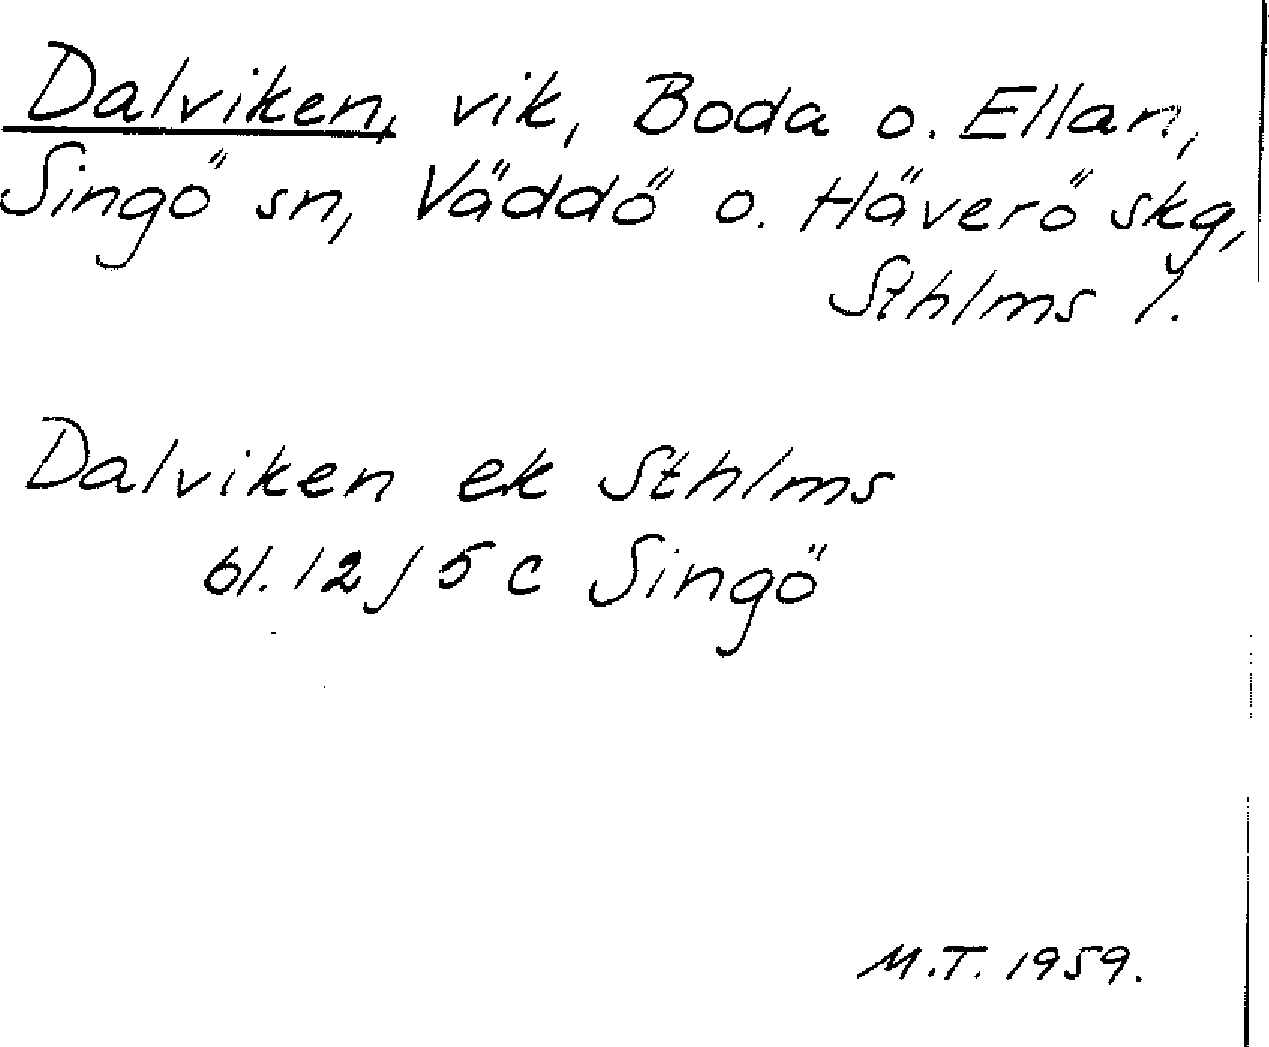 Dalviken, vik, Boda o. Ellan,
Singö sn, Väddö o. Häverö skg,
Sthlms l.
Dalviken ek Sthlms
bl. 12 j 5 c Singö
M.T. 1959.